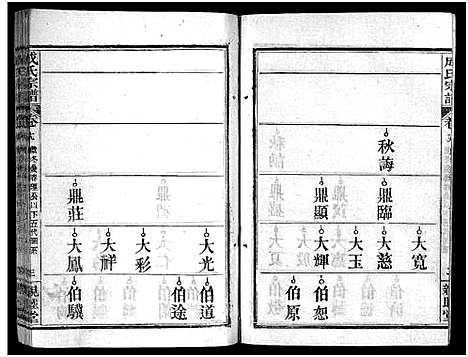 成氏宗譜
卷
秋誨
鼎臨
鼎顯
大寬
大慈
大玉
大輝
伯恕
伯原
鼎莊
大光
大彩
大祥
大鳳
伯道
伯途
伯驥
成氏宗譜
卷
以下五代圖系